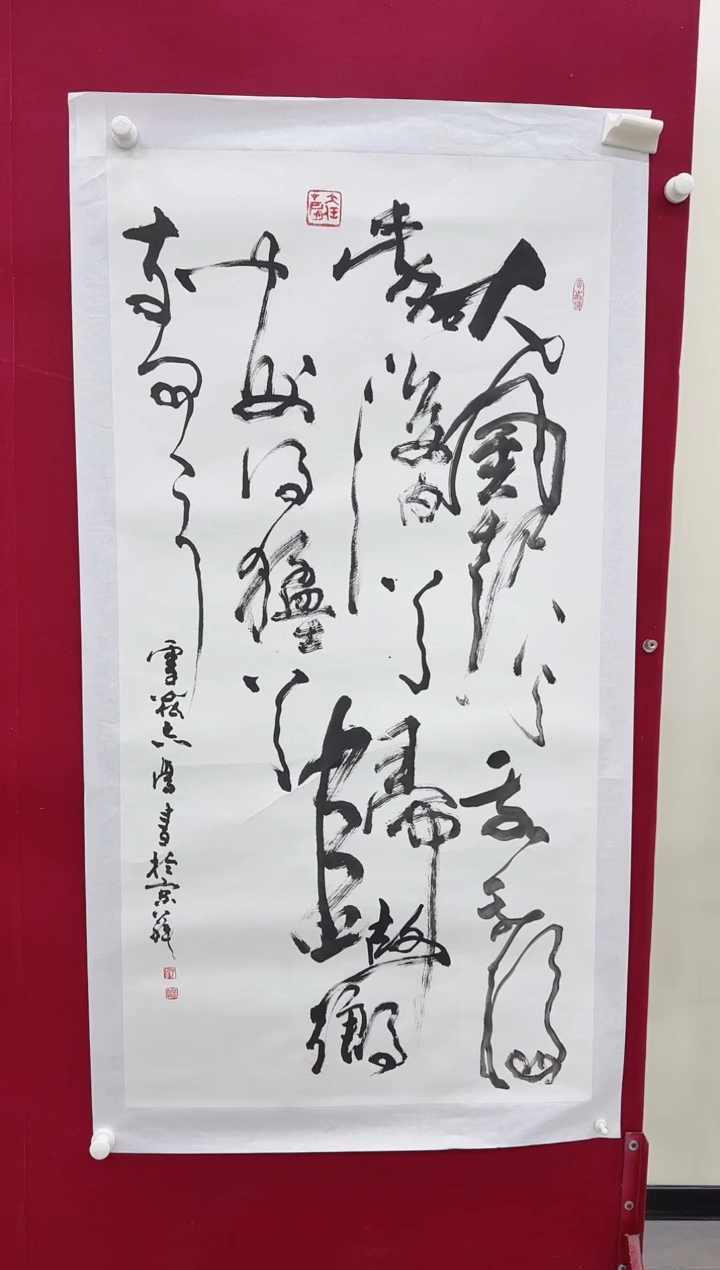 大風起兮雲飛揚
威加海內兮歸故鄉
安得猛士兮
守四方
書於京華